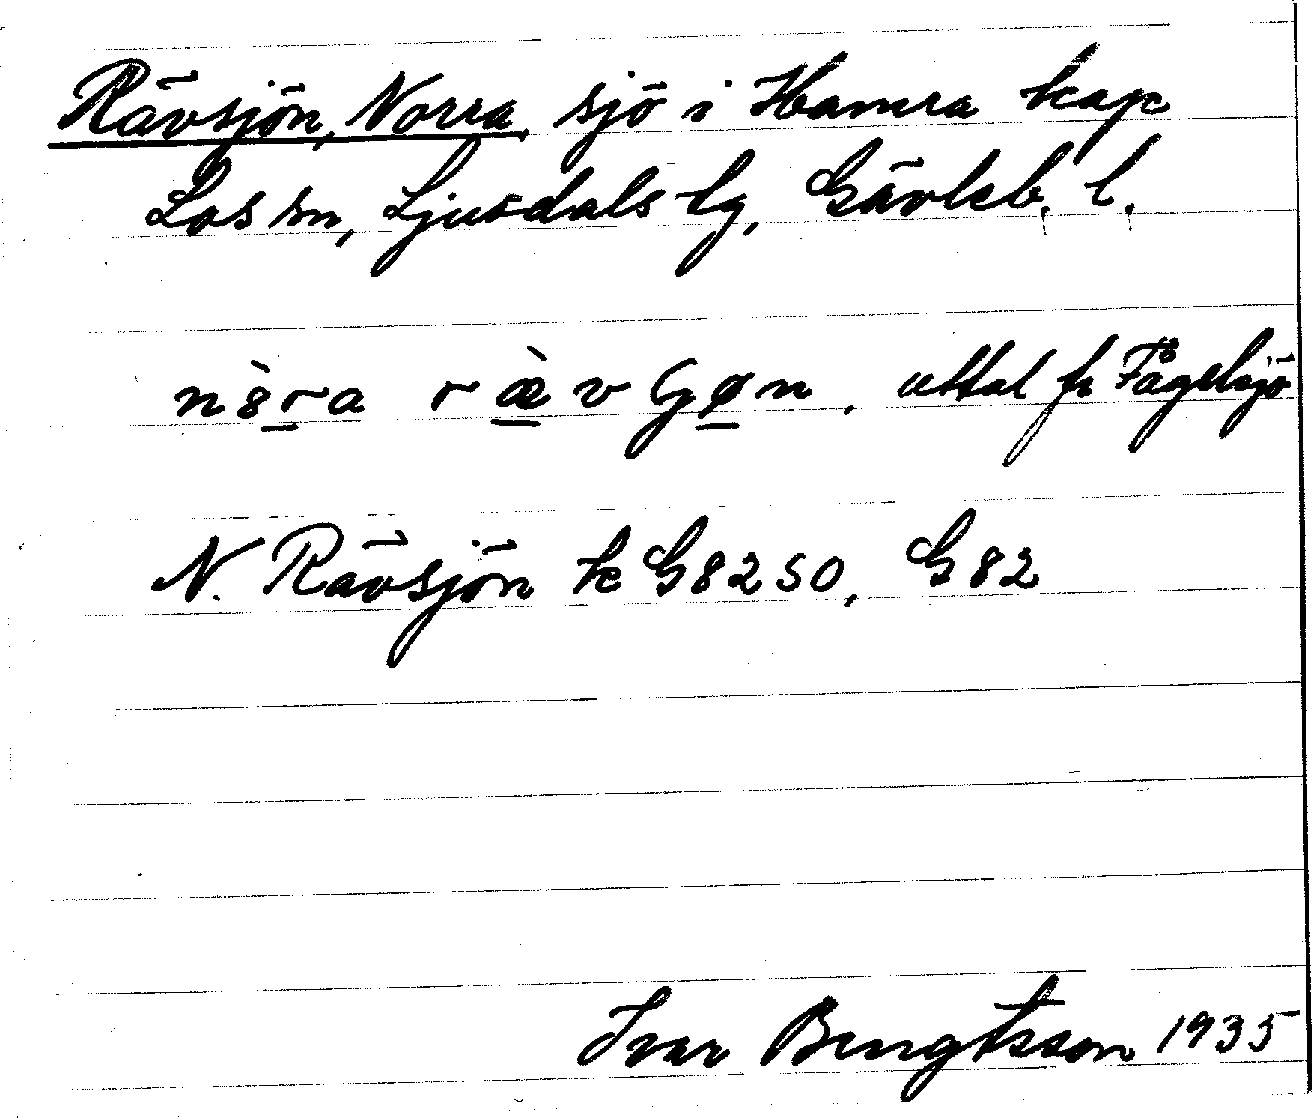 Rävsjön, Norra, sjö i Hamra kap
Los sn, Ljusdals tg, Gävleb. l.
nȣ̀ra rævʃøn, uttal fr Fågelsjö
N. Rävsjön k G8250, G82
Ivar Bengtsson 1935